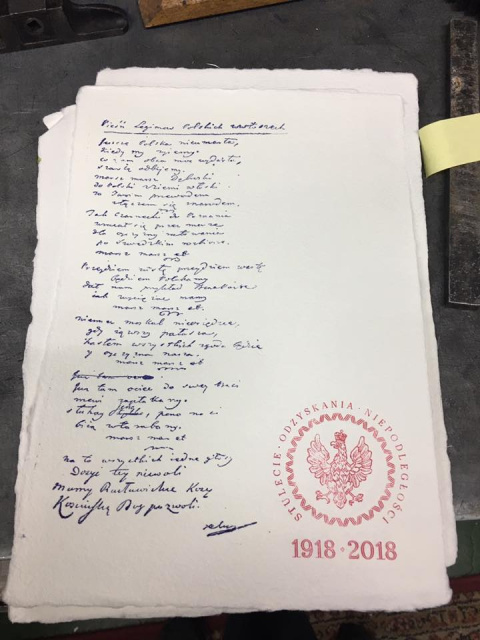 Pieśń Legionow Polskich we Włoszech
Jeszcze Polska nieumarła,
kiedy my żyjemy
co nam obca moc wydarła,
szablą odbijemy.
marsz marsz Dąbrowski
do Polski z ziemi włoski
za Twoim przewodem
złączem się z narodem.
Jak Czarnecki do Poznania
wracał się przez morze
dla ojczyzny ratowania
po szwedzkim rozbiorze.
marsz marsz et
Przejdziem Wisłę przejdziem Wartę
będziem Polakamy
dał nam przykład Bonaparte
jak zwyciężać mamy
marsz marsz et.
niemiec moskal nieosiędzie
gdy jąwszy pałasza,
hasłem wszystkich zgoda będzie
y ojczyzna nasza.
marsz marsz et
Już tam ociec do swej Basi
mówi zapłakany
słuchay jeno, pono nasi
biją w tarabany.
marsz marsz et
na to wszystkich jedne głosy
Dosyć tey niewoli
mamy Racławickie Kosy
Kościuszkę Bóg pozwoli.
STULECIE · ODZYSKANIA · NIEPODLEGŁOŚCI
1918 · 2018